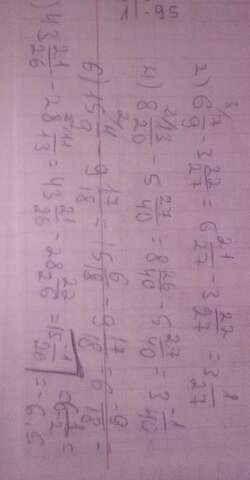 2) 6 7/9 - 3 22/27 = 6 21/27 - 3 22/27 = 3 -1/27
4) 8 13/20 - 5 27/40 = 8 26/40 - 5 27/40 = 3 -1/40
6) 15 4/9 - 9 17/18 = 15 8/18 - 9 17/18 = 6 -9/18 =
= -6 1/2 = -6,5
) 43 21/26 - 28 11/13 = 43 21/26 - 28 22/26 = 15 -1/26